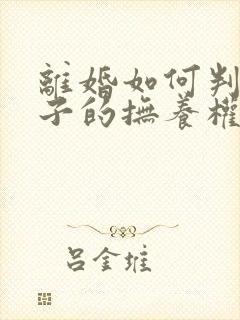 離婚如何判
子的撫養權
吕金維